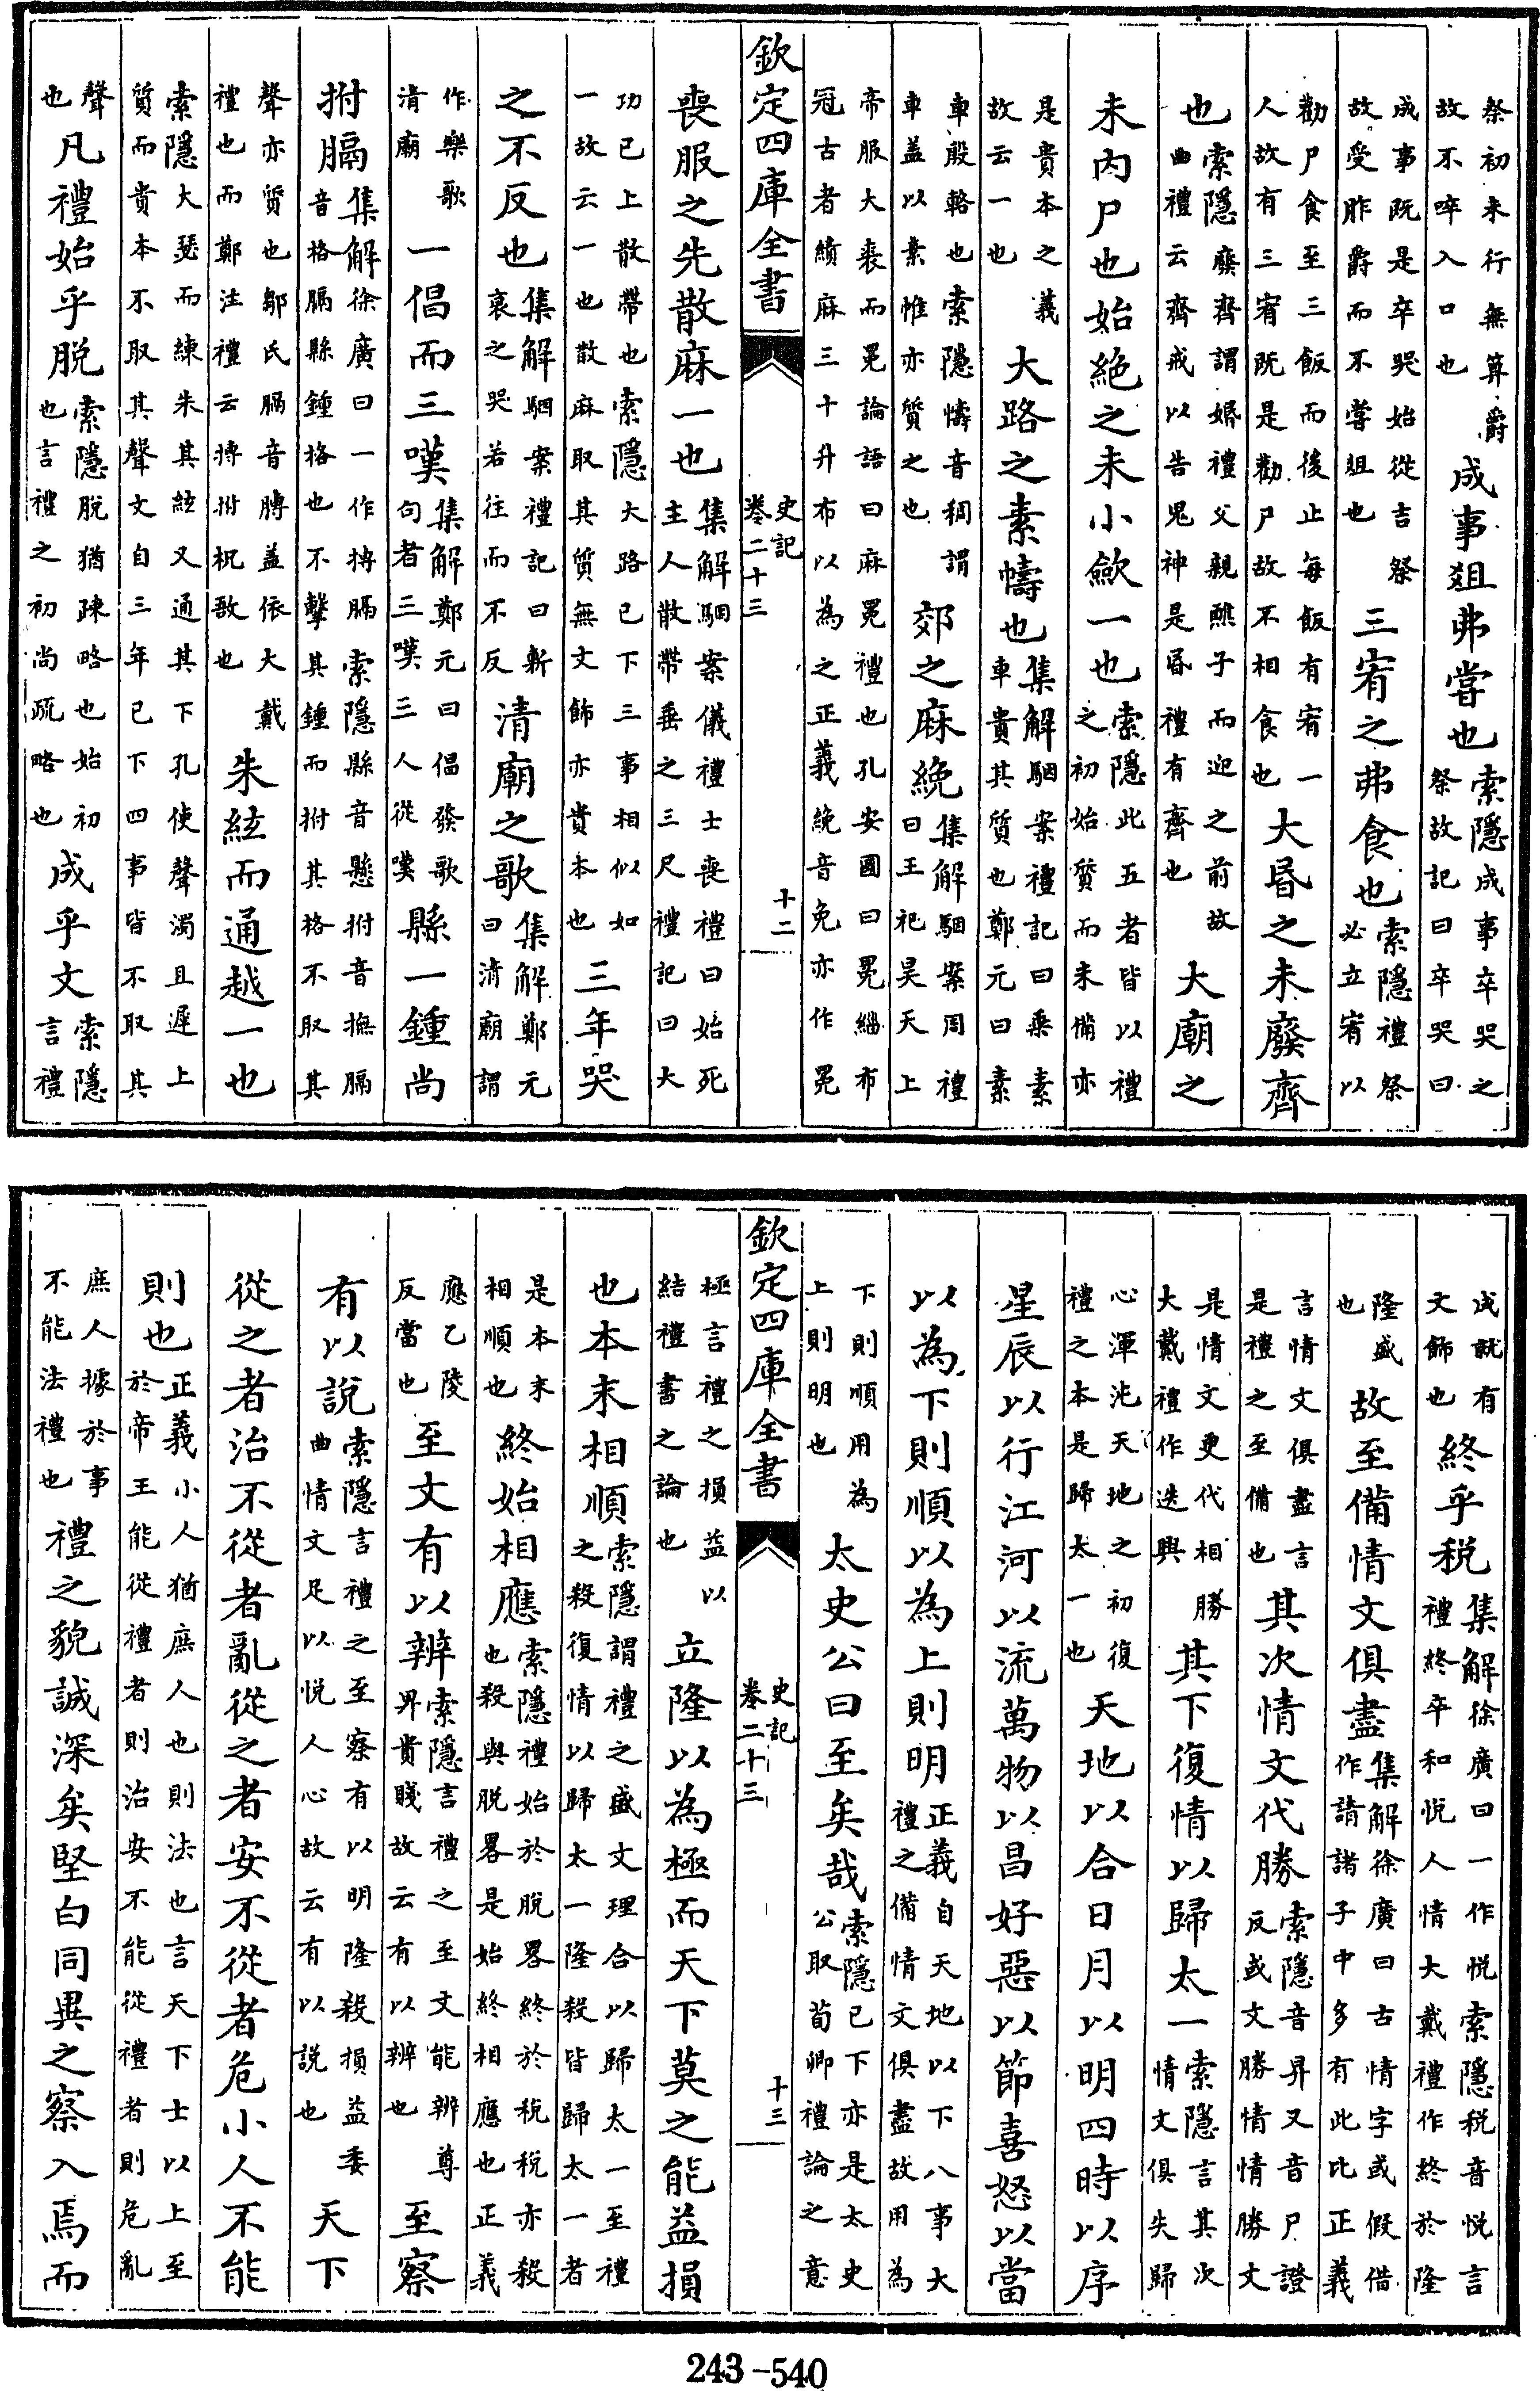 祭初未行無算爵故不啐入口也成事俎弗嘗也索隱成事卒哭之祭故記曰卒哭曰
成事既是卒哭始從吉祭故受胙爵而不嘗俎也三宥之弗食也索隱禮祭必立宥以
勸尸食至三飯而後止每飯有宥一人故有三宥既是勸尸故不相食也大昏之未廢齊
也索隱廢齊謂婚禮父親醮子而迎之前故曲禮云齊戒以告鬼神是昏禮有齊也大廟之
未內尸也始絶之未小歛一也索隱此五者皆以禮之初始質而未備亦
是貴本之義故云一也大路之素幬也集解駰案禮記曰乘素車貴其質也鄭元曰素
車殷輅也索隱幬音稠謂車蓋以素帷亦質之也郊之麻絻集解駰案周禮曰王祀昊天上
帝服大裘而冕論語曰麻冕禮也孔安國曰冕緇布冠古者績麻三十升布以為之正義絻音免亦作冕
欽定四庫全書 史記 卷二十三 十二
喪服之先散麻一也集解駰案儀禮士喪禮曰始死主人散帶垂之三尺禮記曰大
功已上散帶也索隱大路已下三事相似如一故云一也散麻取其質無文飾亦貴本也三年哭
之不反也集解駰案禮記曰斬衰之哭若往而不反清廟之歌集解鄭元曰清廟謂
作樂歌清廟一倡而三嘆集解鄭元曰倡發歌句者三嘆三人從嘆縣一鍾尚
拊膈集解徐廣曰一作搏膈索隱縣音懸拊音撫膈音格膈縣鍾格也不擊其鍾而拊其格不取其
聲亦質也鄒氏膈音膊蓋依大戴禮也而鄭注禮云搏拊柷敔也朱絃而通越一也
索隱大瑟而練朱其絃又通其下孔使聲濁且遲上質而貴本不取其聲文自三年已下四事皆不取其
聲也凡禮始乎脫索隱脫猶疎略也始初也言禮之初尚疏略也成乎文索隱言禮
成就有文飾也終乎稅集解徐廣曰一作悅索隱稅音悅言禮終卒和悅人情大戴禮作終於隆
隆盛也故至備情文俱盡集解徐廣曰古情字或假借作請諸子中多有此比正義
言情文俱盡言是禮之至備也其次情文代勝索隱音昇又音尸證反或文勝情情勝文
是情文更代相勝大戴禮作迭興其下復情以歸太一索隱言其次情文俱失歸
心渾沌天地之初復禮之本是歸太一也天地以合日月以明四時以序
星辰以行江河以流萬物以昌好惡以節喜怒以當
以為下則順以為上則明正義自天地以下八事大禮之備情文俱盡故用為
下則順用為上則明也太史公曰至矣哉索隱已下亦是太史公取荀卿禮論之意
欽定四庫全書 史記 卷二十三 十三
極言禮之損益以結禮書之論也立隆以為極而天下莫之能益損
也本末相順索隱謂禮之盛文理合以歸太一至禮之殺復情以歸太一隆殺皆歸太一者
是本末相順也終始相應索隱禮始於脫畧終於稅稅亦殺也殺與脫畧是始終相應也正義
應乙陵反當也至文有以辨索隱言禮之至文能辨尊昇貴賤故云有以辨也至察
有以說索隱言禮之至察有以明隆殺損益委曲情文足以悅人心故云有以說也天下
從之者治不從者亂從之者安不從者危小人不能
則也正義小人猶庶人也則法也言天下士以上至於帝王能從禮者則治安不能從禮者則危亂
庶人據於事不能法禮也禮之貌誠深矣堅白同異之察入焉而
243-540